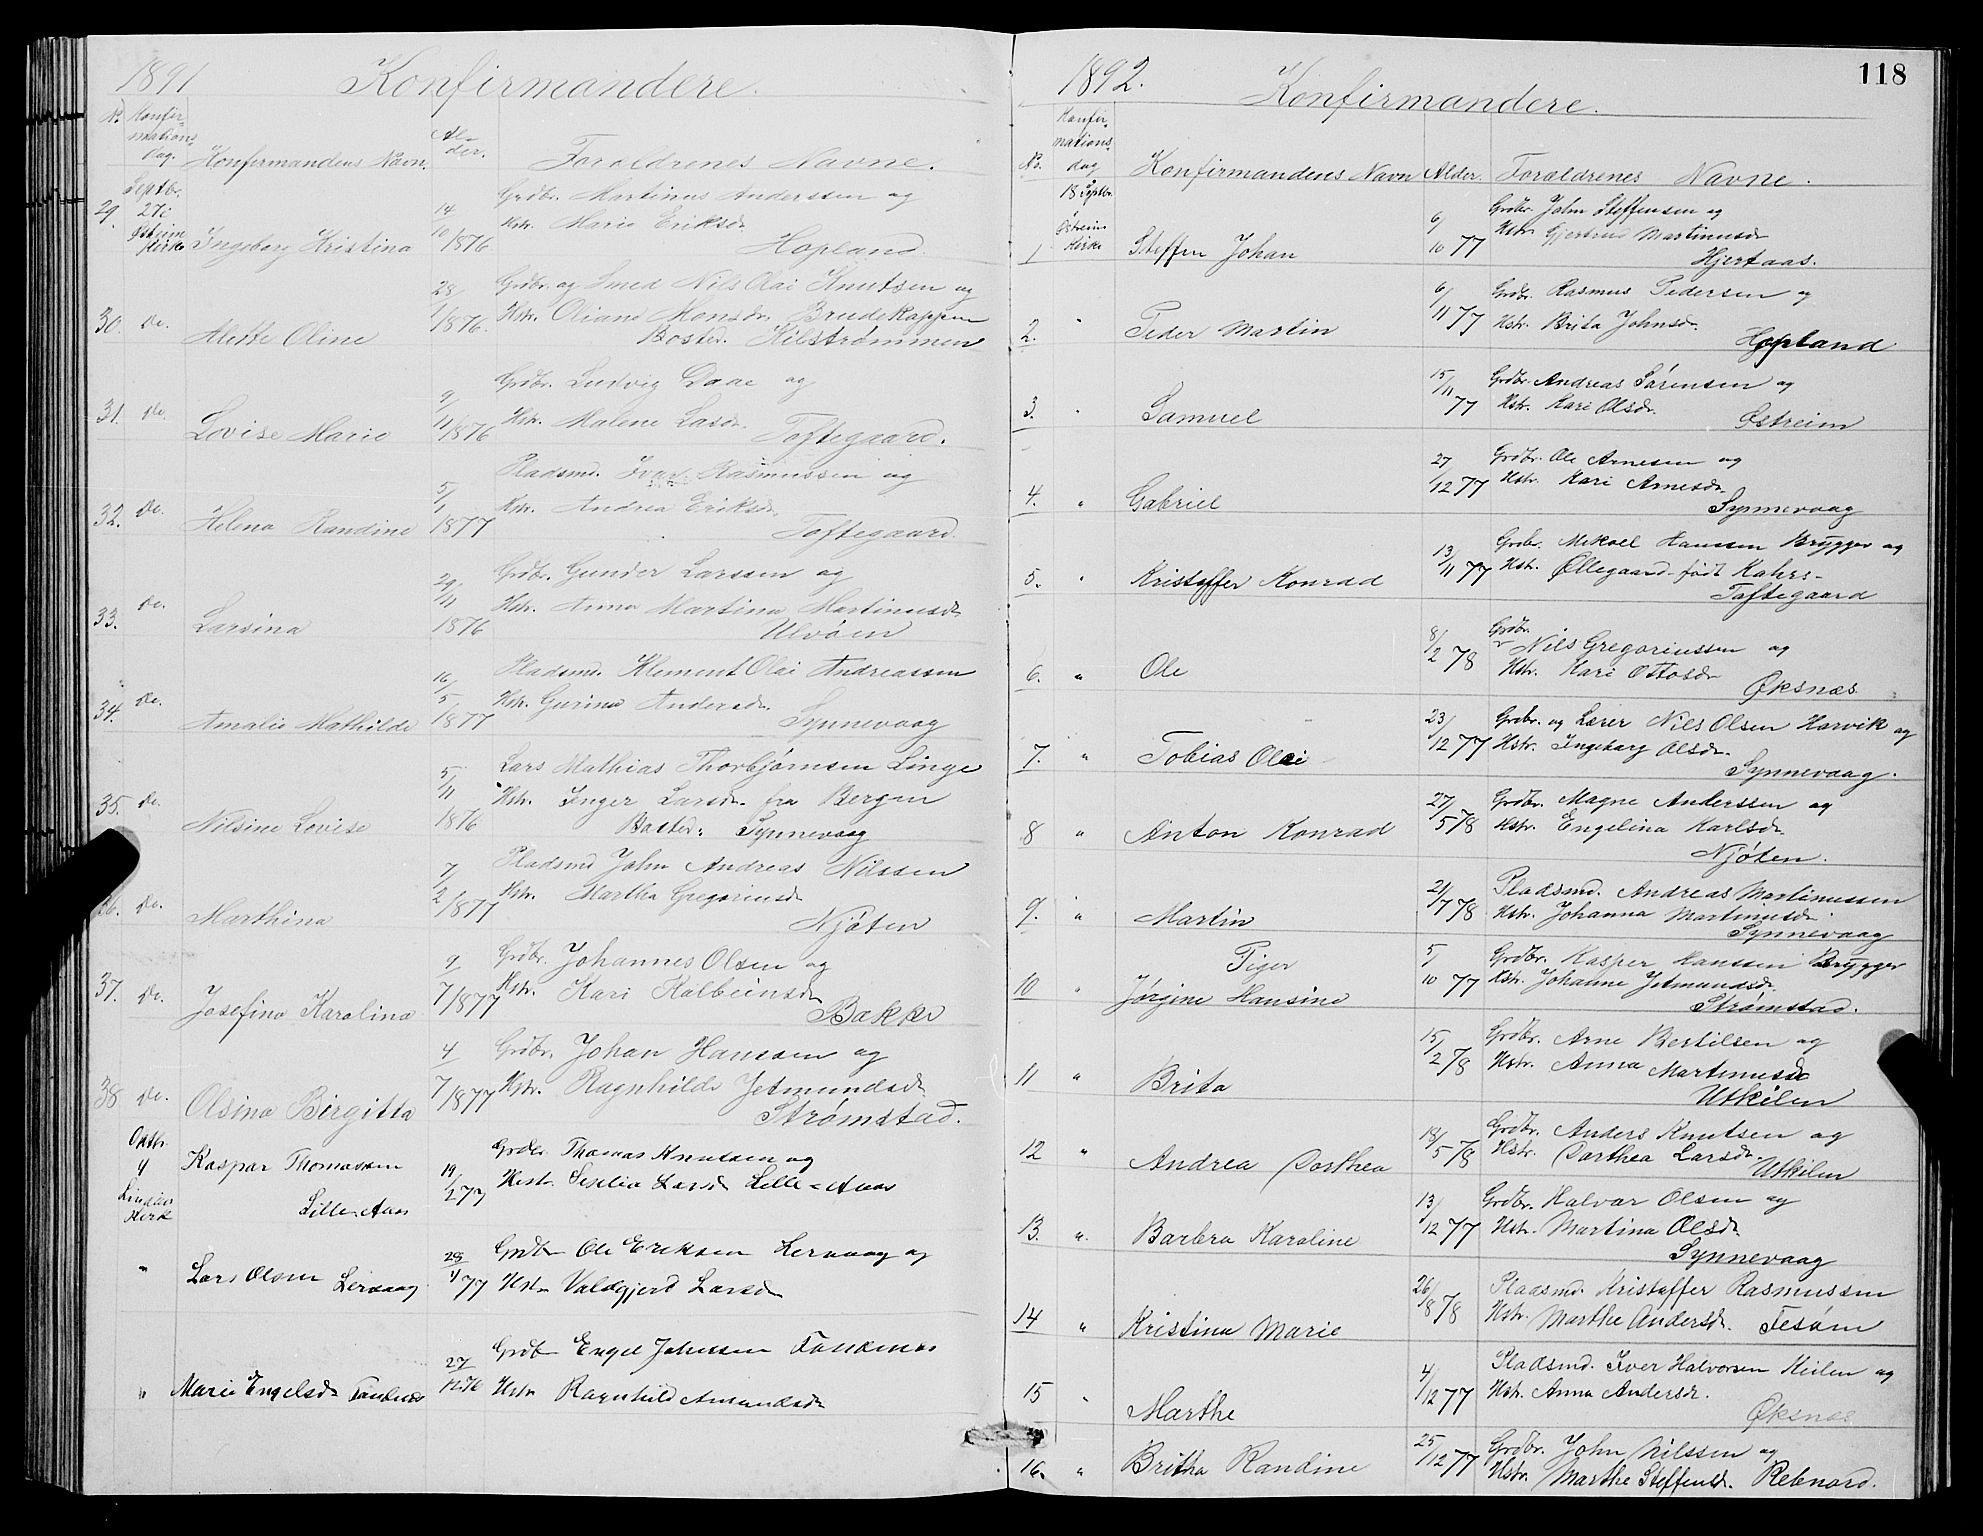 1891 Konfirmandere.
N. Konfirmations Dag. Konfirmandens Navn. Alder. Foraldrenes Navne.
Septbr.
29. 27de Østreim Kirke Ingeborg Kristina 14/10 1876 Grdbr. Martinus Anderssen og
Hstr. Marie Eriksdr.
Hopland
30. do. Alette Oline 28/1 1876. Grdbr. og Smed Nils Olai Knutsen og
Hstr. Oliane Monsdr. Brudekappen
Bosted. Kilstrømmen
31. do. Lovise Marie 9/11 1876 Grdbr. Ludvig Daae og
Hstr. Malene Lasdr.
Toftegaard.
32. do. Helena Randine 5/1 1877 Pladsmd. Ivar Rasmussen og
Hstr. Andrea Eriksdr.
Toftegaard.
33. do. Larsina 29/11 1876 Grdbr. Gunder Larssen og
Hstr. Anna Martina Martinusdr.
Ulvøen
34. do. Amalie Mathilde 16/5 1877 Pladsmd. Klement Olai Andreassen
Hstr. Gurina Andersdr.
Synnevaag
35. do. Nilsine Lovise 5/11 1876 Lars Mathias Thorbjørnsen Linge
Hstr. Inger Larsdr. fra Bergen
Bosted: Synnevaag
36. do. Marthina 7/2 1877 Pladsmd John Andreas Nilssen
Hstr. Martha Gregoriusdr
Njøten
37. do. Josefina Karolina 9/7 1877 Grdbr. Johannes Olsen og
Hstr. Kari Kolbeinsdr
Bakke
38 do. Olsina Birgitta 4/7 1877 Grdbr. Johan Hanssen og
Hstr. Ragnhilde Jetmundsdr
Strømstad.
Oktbr. 4 Lindaas Kirk Kaspar Thomassen 19/2 77 Grdbr. Thomas Knutsen og
Lille-Aas Hustr. Larsdr Lille-Aas
" Lars Olsen Lervaag 28/4 77 Grdbr Ole Eriksen Lervaag og
Hstr Valdgjerd Larsdr
" Marie Engelsdr 27/12 76 Grdbr Engel Johnssen
Hstr Ragnhild Amundsdr
118
1892. Konfirmandere.
No. Konfirmations dag Konfirmandens Navn Alder. Foraldrenes Navne.
18 Septbr.
1 Østreim Kirke Steffen Johan 6/10 77 Grdbr. John Steffensen og
Hstr. Gjertrud Martinusdr
Hjertaas.
2. " Peder Martin 6/11 77 Grdbr. Rasmus Pedersen og
Hstr. Brita Johnsdr.
Hopland
3. " Samuel 15/11 77 Grdbr. Andreas Sørensen og
Hstr. Kari Olsdr.
Østreim
4. " Gabriel 27/12 77 Grdbr. Ole Arnesen og
Hstr. Kari Arnesdr.
Synnevaag
5. " Kristoffer Konrad 13/11 77 Grdbr. Mikael Hanssen Brygger og
Hst. Øllegaard født Kahrs-
Toftegaard
6. " Ole 8/2 78 Grdbr. Nils Gregoriussen og
Hstr. Kari Ottosdr
Øksnæs
7. " Tobias Olai 23/12 77 Grdbr. og Lærer Nils Olsen Harvik og
Hstr. Ingeborg Olsdr.
Synnevaag.
8 " Anton Konrad 27/5 78 Grdbr. Magne Anderssen og
Hstr. Engelina Karlsdr.
Njøten.
9. " Martin 21/7 78 Pladsmd. Andreas Martinussen
Hstr. Johanna Martinusdr.
Synnevaag
Piger
10 " Jørgine Hansine 5/10 77 Grdbr. Kasper Hanssen Brygger
Hstr. Johanne Jetmundsdr.
Strømstad.
11 " Brita 15/2 78 Grdbr. Arne Bertilsen og
Hstr. Anna Martinusdr
Utkilen
12 " Andrea Dorthea 18/5 78 Grdbr. Anders Knutsen og
Hstr. Dorthea Larsdr.
Utkilen
13. " Barbra Karoline 13/12 77 Grdbr. Halvar Olsen og
Hst. Martina Olsdr.
Synnevaag
14 " Kristina Marie 26/8 78 Pladsmd. Kristoffer Rasmussen
Hstr. Marthe Andersdr. Fesøen
15 " Marthe 4/12 77 Pladsmd. Iver Halvorsen Kilen og
Hstr. Anna Andersdr.
Øksnæs
16. " Britha Randine 25/12 77 Grdbr. John Nilssen og
Hstr. Marthe Steffensdr. Rebnord.